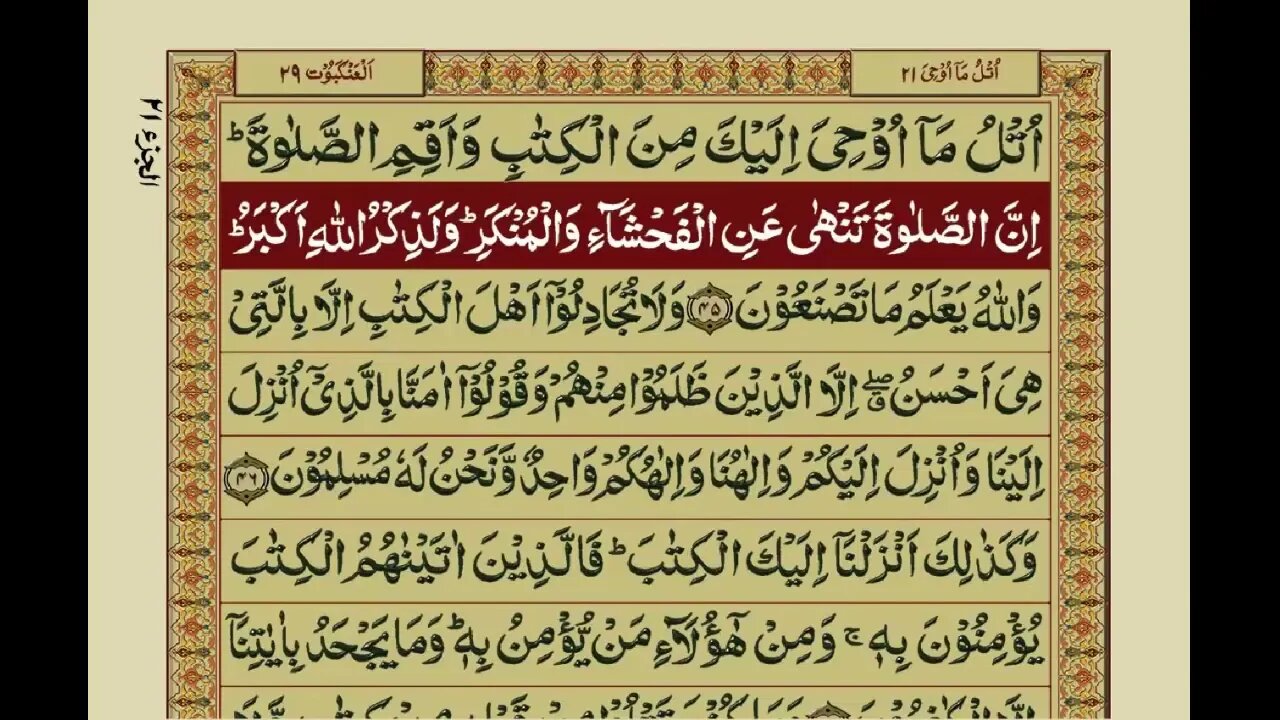 اُتْلُ مَآ اُوْحِیَ ۲۱
اَلْعَنْکَبُوْت ۲۹
الجزء ۲۱
اُتْلُ مَاۤ اُوْحِیَ اِلَیْكَ مِنَ الْكِتٰبِ وَاَقِمِ الصَّلٰوةَ ؕ
اِنَّ الصَّلٰوةَ تَنْهٰی عَنِ الْفَحْشَآءِ وَالْمُنْكَرِ ؕ وَلَذِكْرُ اللّٰهِ اَكْبَرُ ؕ
وَاللّٰهُ یَعْلَمُ مَا تَصْنَعُوْنَ ﴿۴۵﴾ وَلَا تُجَادِلُوْۤا اَهْلَ الْكِتٰبِ اِلَّا بِالَّتِیْ
هِیَ اَحْسَنُ ۖق اِلَّا الَّذِیْنَ ظَلَمُوْا مِنْهُمْ وَقُوْلُوْۤا اٰمَنَّا بِالَّذِیْۤ اُنْزِلَ
اِلَیْنَا وَاُنْزِلَ اِلَیْكُمْ وَاِلٰهُنَا وَاِلٰهُكُمْ وَاحِدٌ وَّنَحْنُ لَهٗ مُسْلِمُوْنَ ﴿۴۶﴾
وَكَذٰلِكَ اَنْزَلْنَاۤ اِلَیْكَ الْكِتٰبَ ؕ فَالَّذِیْنَ اٰتَیْنٰهُمُ الْكِتٰبَ
یُؤْمِنُوْنَ بِهٖ ۚ وَمِنْ هٰۤؤُلَآءِ مَنْ یُّؤْمِنُ بِهٖ ؕ وَمَا یَجْحَدُ بِاٰیٰتِنَاۤ